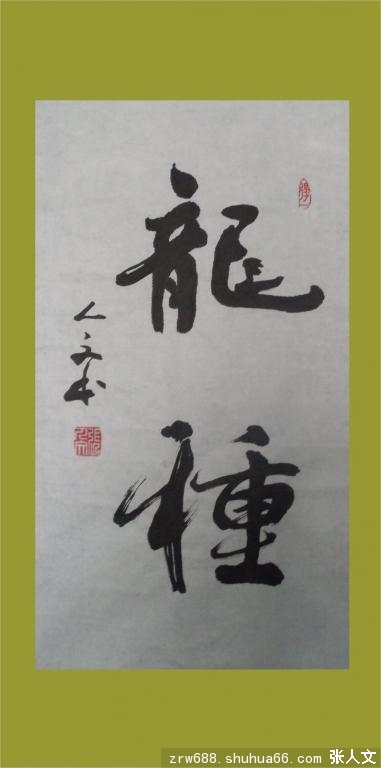 龍種
人文书
zrw688.shuhua66.com 张人文